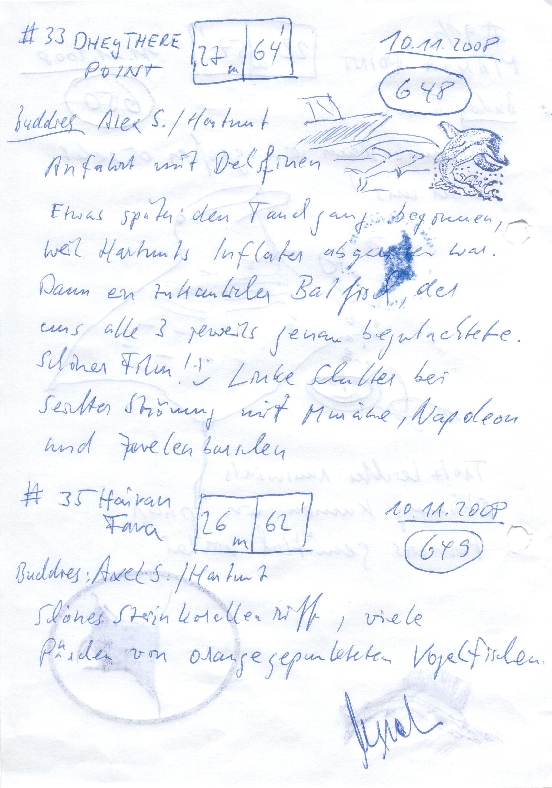 # 33 DHEYTHERE
POINT
27 m 64'
10.11.2008
648
Buddies Alex S. / Hartmut
Anfahrt mit Delfinen
Etwas später den Tauchgang begonnen,
weil Hartmuts Inflater war.
Dann ein zutraulicher Batfisch, der
uns alle 3 jeweils genau begutachtete.
Schöner Film! Linke Schulter bei
seichter Strömung mit Muräne, Napoleon
und Juwelenbarschen
# 35 Hairan
Fara
26 m 62'
10.11.2008
649
Buddies: Axel S. / Hartmut
Schönes Steinkorallenriff, viele
von orangegepunkteten Vogelfischen.